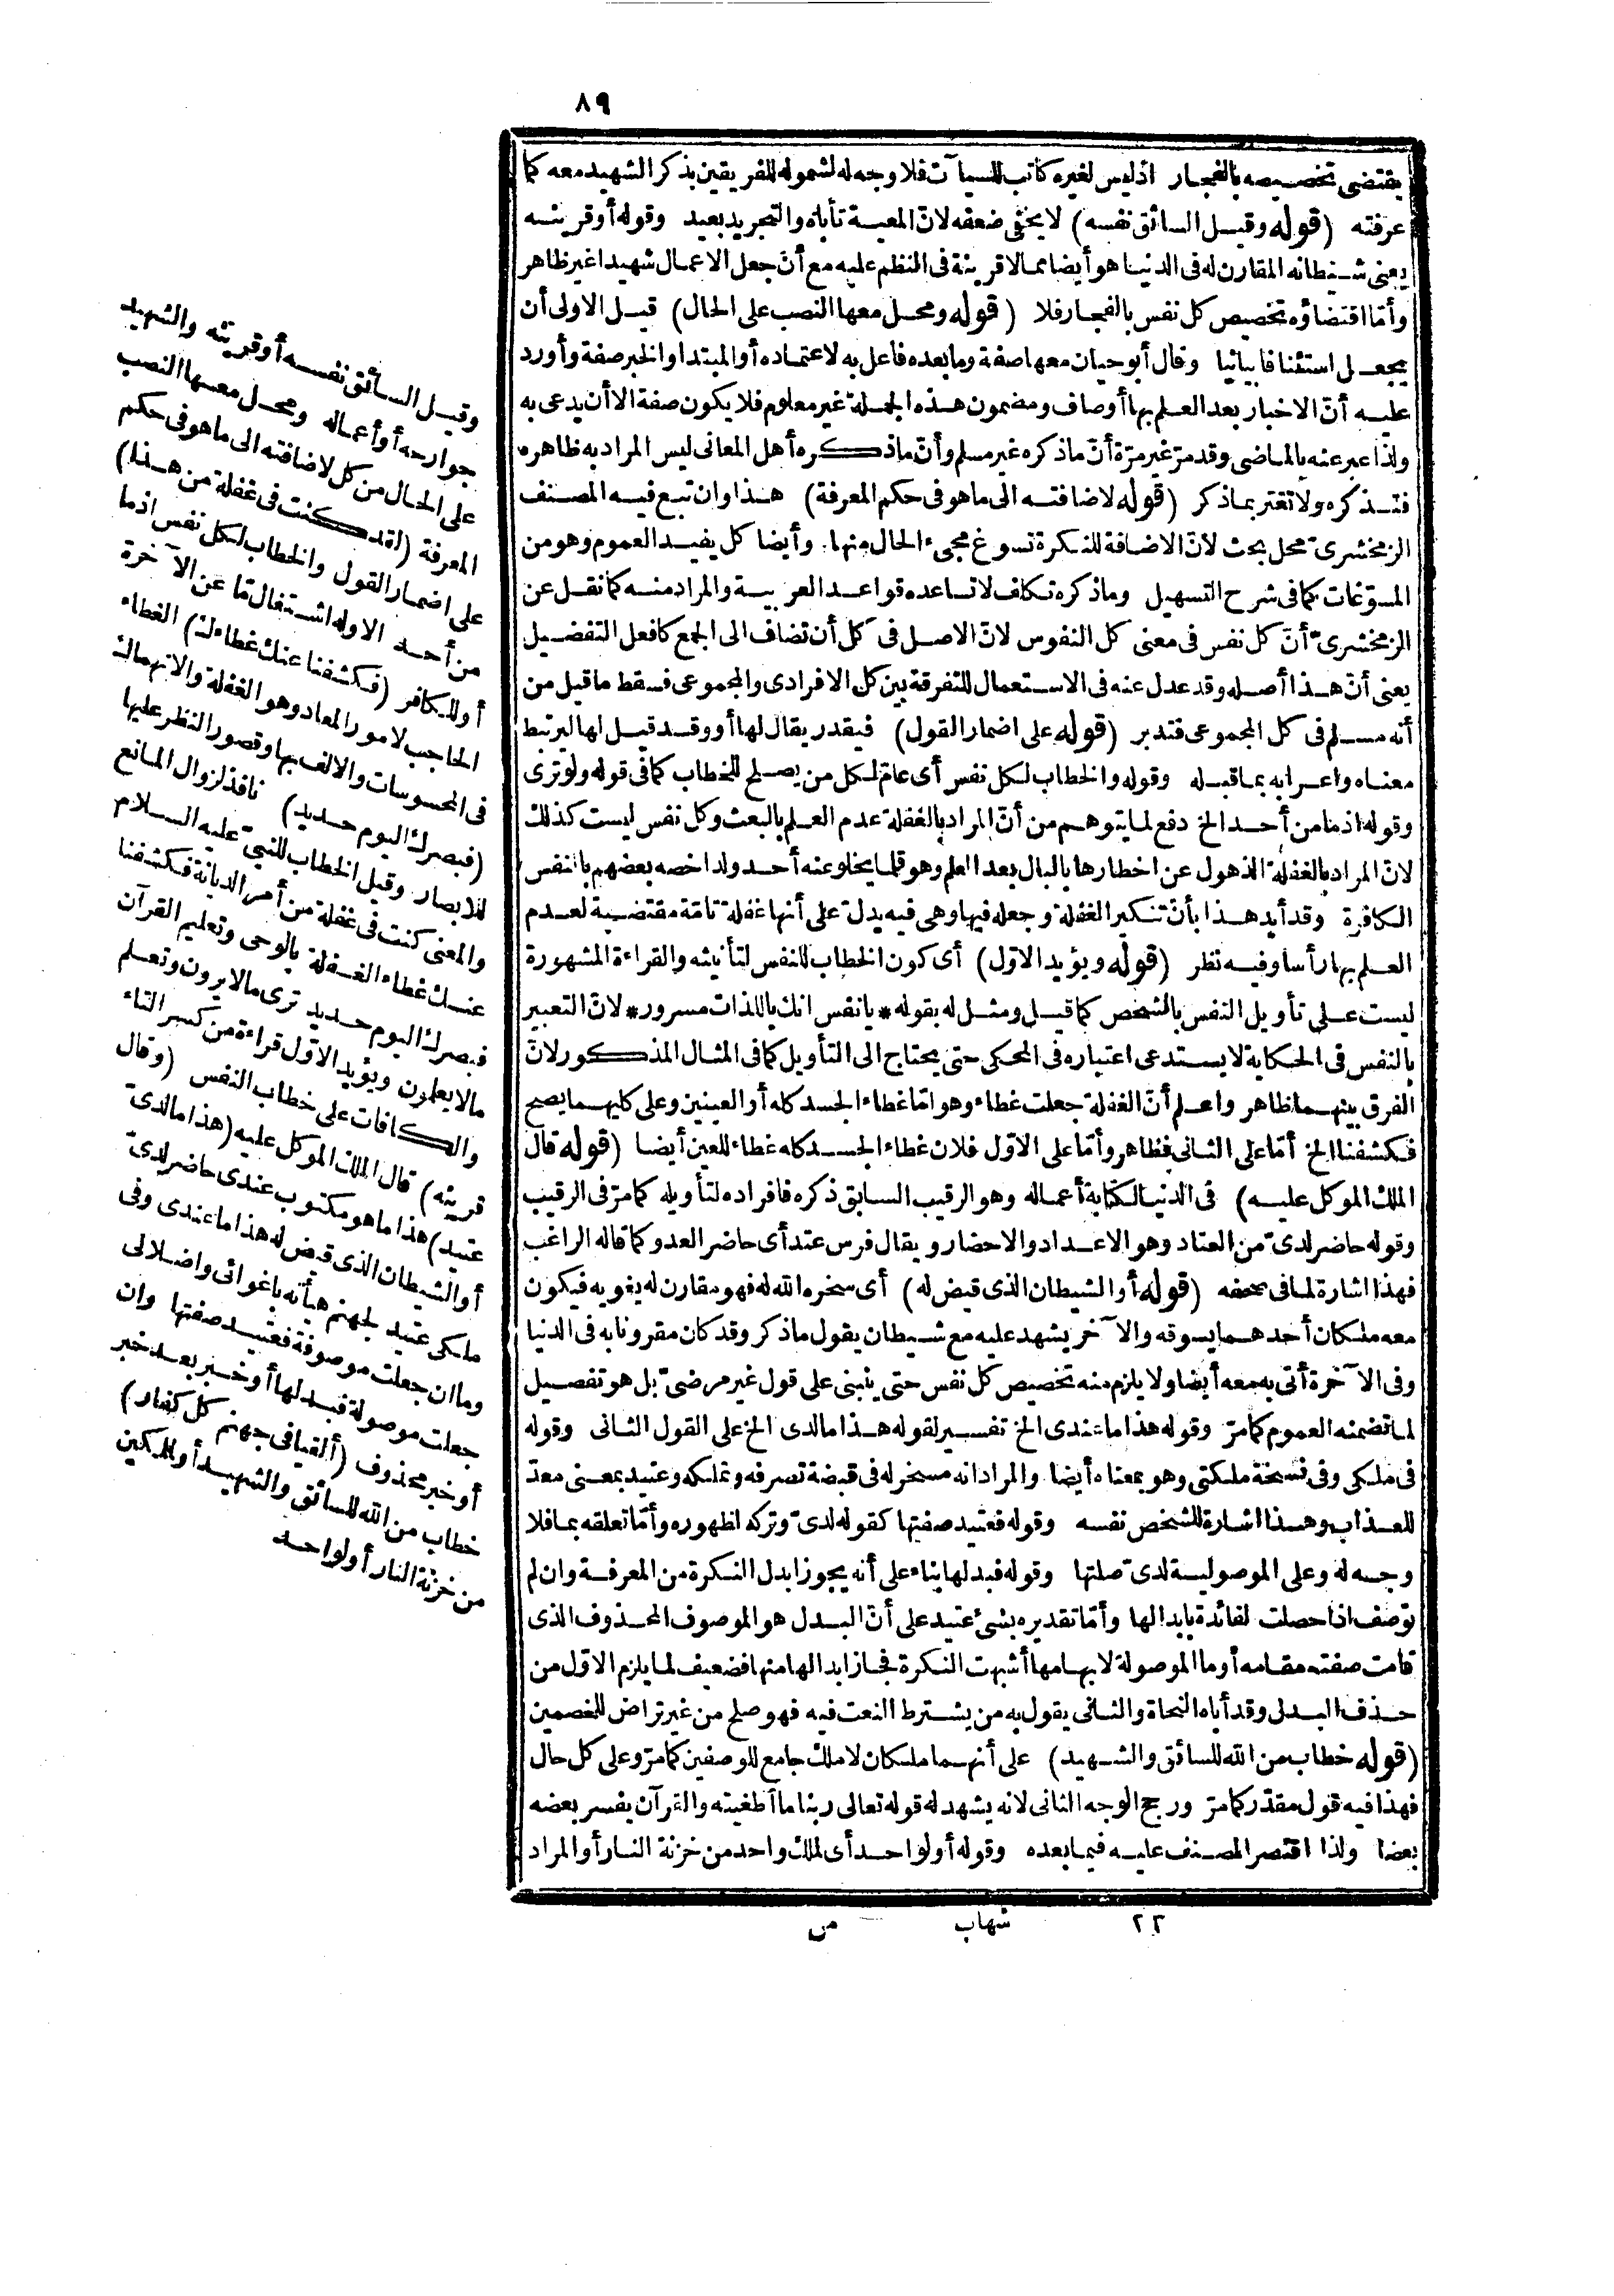 ٨٩
يقتضى تخصيصه بالفجار اذليس لغيره كاتب للسيآت فلا وجه له لشموله للفريقين بذكر الشهيد معه كما
عرفته (قوله وقيل السائق نفسه) لا يخفى ضعفه لانّ المعية تأباه والتجريد بعيد وقوله أو قرينه
يعنى شيطانه المقارن له فى الدنيا هو أيضا مما لا قرينة فى النظم عليه مع أنّ جعل الاعمال شهيدا غير ظاهر
وأمّا اقتضاؤه تخصيص كل نفس بالفجار فلا (قوله ومحل معها النصب على الحال) قيل الاولى أن
يجعل استئنافا بيانيا وقال أبو حيان معها صفة وما بعده فاعل به لاعتماده أو المبتدا والخبر صفة وأورد
عليه أنّ الاخبار بعد العلم بها أوصاف ومضمون هذه الجملة غير معلوم فلا يكون صفة الا أن يدعى به
ولذا عبر عنه بالماضى وقد مرّ غير مرّة أنّ ما ذكره غير مسلم وأنّ ما ذكره أهل المعانى ليس المراد به ظاهره
فتذكره ولا تغتر بما ذكر (قوله لاضافته الى ما هو فى حكم المعرفة) هذا وان تبع فيه المصنف
الزمخشرىّ محل بحث لانّ الاضافة للنكرة تسوغ مجىء الحال منها. وأيضا كل يفيد العموم وهو من
المسوّغات كما فى شرح التسهيل وما ذكره تكلف لا تساعده قواعد العربية والمراد منه كما نقل عن
الزمخشرىّ أنّ كل نفس فى معنى كل النفوس لانّ الاصل فى كل أن تضاف الى الجمع كافعل التفضيل
يعنى أنّ هذا أصله وقد عدل عنه فى الاستعمال للتفرقة بين كل الافرادى والمجموعى فسقط ما قيل من
أنه مسلم فى كل المجموعى فتدبر (قوله على اضمار القول) فيقدر يقال لها أو وقد قيل لها ليرتبط
معناه واعرابه بما قبله وقوله والخطاب لكل نفس أى عامّ لكل من يصلح للخطاب كما فى قوله ولو ترى
وقوله اذ ما من أحد الخ دفع لما يتوهم من أنّ المراد بالغفلة عدم العلم بالبعث وكل نفس ليست كذلك
لانّ المراد بالغفلة الذهول عن اخطارها بالبال بعد العلم وهو قلما يخلو عنه أحد ولذا خصه بعضهم بالنفس
الكافرة وقد أيد هذا بأنّ تنكير الغفلة وجعله فيها وهى فيه يدلّ على أنها غفلة تامّة مقتضية لعدم
العلم بها رأسا وفيه نظر (قوله ويؤيد الاوّل) أى كون الخطاب للنفس لتأنيثه والقراءة المشهورة
ليست على تأويل النفس بالشخص كما قيل ومثل له بقوله * يا نفس انك باللذات مسرور * لانّ التعبير
بالنفس فى الحكاية لا يستدعى اعتباره فى المحكى حتى يحتاج الى التأويل كما فى المثال المذكور لانّ
الفرق بينهما ظاهر واعلم أنّ الغفلة جعلت غطاء وهو امّا غطاء الجسد كله أو العينين وعلى كليهما يصح
فكشفنا الخ أمّا على الثانى فظاهر وأمّا على الاوّل فلان غطاء الجسد كله غطاء للعين أيضا (قوله قال
الملك الموكل عليه) فى الدنيا لكتابة أعماله وهو الرقيب السابق ذكره فافراده لتأويله كما مرّ فى الرقيب
وقوله حاضر لدىّ من العتاد وهو الاعداد والاحضار ويقال فرس عتد أى حاضر العدو كما قاله الراغب
فهذا اشارة لما فى صحفه (قوله أو الشيطان الذى قيض له) أى سخره الله له فهو مقارن له يغويه فيكون
معه ملكان أحدهما يسوقه والآخر يشهد عليه مع شيطان يقول ما ذكر وقد كان مقرونا به فى الدنيا
وفى الآخرة أتى به معه أيضا ولا يلزم منه تخصيص كل نفس حتى يبتنى على قول غير مرضىّ بل هو تفصيل
لما تضمنه العموم كما مرّ وقوله هذا ما عندى الخ تفسير لقوله هذا ما لدى الخ على القول الثانى وقوله
فى ملكى وفى نسخة ملكتى وهو بمعناه أيضا والمراد انه مسخر له فى قبضة تصرفه وتملكه وعتيد بمعنى معدّ
للعذاب وهذا اشارة للشخص نفسه وقوله فعتيد صفتها كقوله لدىّ وتركه لظهوره وأمّا تعلقه بما فلا
وجه له وعلى الموصولية لدىّ صلتها وقوله فبدلها بناء على أنه يجوز ابدال النكرة من المعرفة وان لم
توصف اذا حصلت لفائدة بابدالها وأمّا تقديره بشئ عتيد على أنّ البدل هو الموصوف المحذوف الذى
قامت صفته مقامه أو ما الموصولة لابهامها أشبهت النكرة فجاز ابدالها منها فضعيف لما يلزم الاوّل من
حذف البدل وقد أباه النحاة والثانى يقول به من يشترط النعت فيه فهو صلح من غير تراض للخصمين
(قوله خطاب من الله للسائق والشهيد) على أنهما ملكان لا ملك جامع للوصفين كما مرّ وعلى كل حال
فهذا فيه قول مقدّر كما مرّ ورجح الوجه الثانى لانه يشهد له قوله تعالى ربنا ما أطغيته والقرآن يفسر بعضه
بعضا ولذا اقتصر المصنف عليه فيما بعده وقوله أو لواحد أى لملك واحد من خزنة النار أو المراد
وقيل السائق نفسه أو قرينه والشهيد
جوارحه أو أعماله ومحل معها النصب
على الحال من كل لاضافته الى ما هو فى حكم
المعرفة (لقد كنت فى غفلة من هذا)
على اضمار القول والخطاب لكل نفس اذ ما
من أحد الا وله اشتغال مّا عن الآخرة
أو للكافر (فكشفنا عنك غطاءك) الغطاء
الحاجب لامور المعاد وهو الغفلة والانهماك
فى المحسوسات والالف بها وقصور النظر عليها
(فبصرك اليوم حديد) نافذ لزوال المانع
للابصار وقيل الخطاب للنبىّ عليه السلام
والمعنى كنت فى غفلة من أمر الديانة فكشفنا
عنك غطاء الغفلة بالوحى وتعليم القرآن
فبصرك اليوم حديد ترى ما لا يرون وتعلم
ما لا يعلمون ويؤيد الاوّل قراءة من كسر التاء
والكافات على خطاب النفس (وقال
قرينه) قال الملك الموكل عليه (هذا ما لدىّ
عتيد) هذا ما هو مكتوب عندى حاضر لدىّ
أو الشيطان الذى قيض له هذا ما عندى وفى
ملكى عتيد لجهنم هيأته باغوائى واضلالى
وما ان جعلت موصوفة فعتيد صفتها وان
جعلت موصولة فبدلها أو خبر بعد خبر
أو خبر محذوف (ألقيا فى جهنم كل كفار)
خطاب من الله للسائق والشهيد أو للملكين
من خزنة النار أو لواحد
٢٢ شهاب من